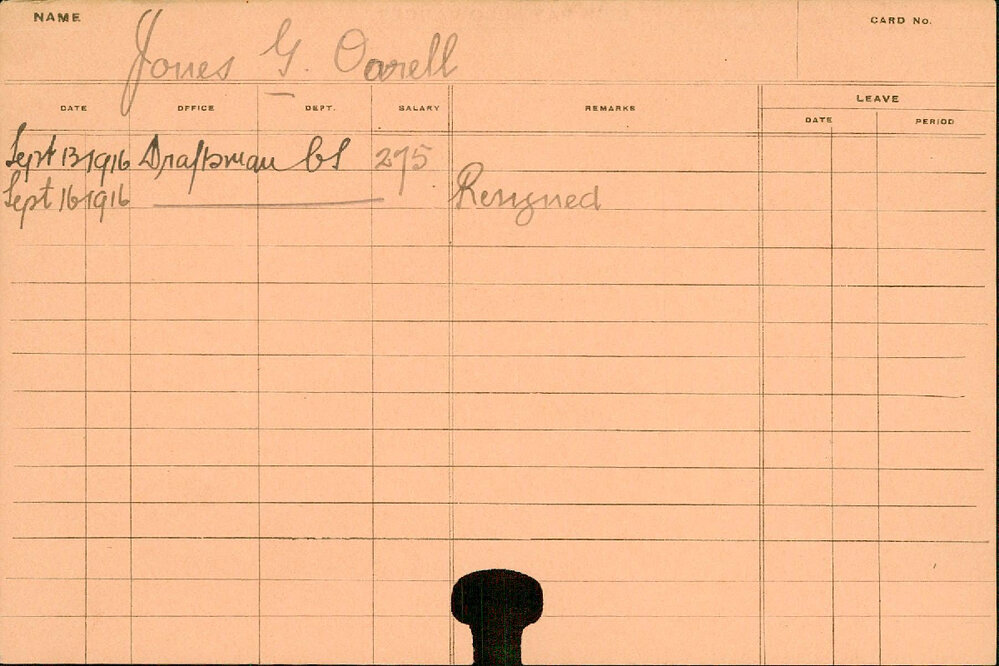 NAME Jones G. Oarell CARD No.
DATE OFFICE DEPT. SALARY REMARKS LEAVE
DATE PERIOD
Sept 13 1916 Draftsman CS 275
Sept 16 1916 Resigned